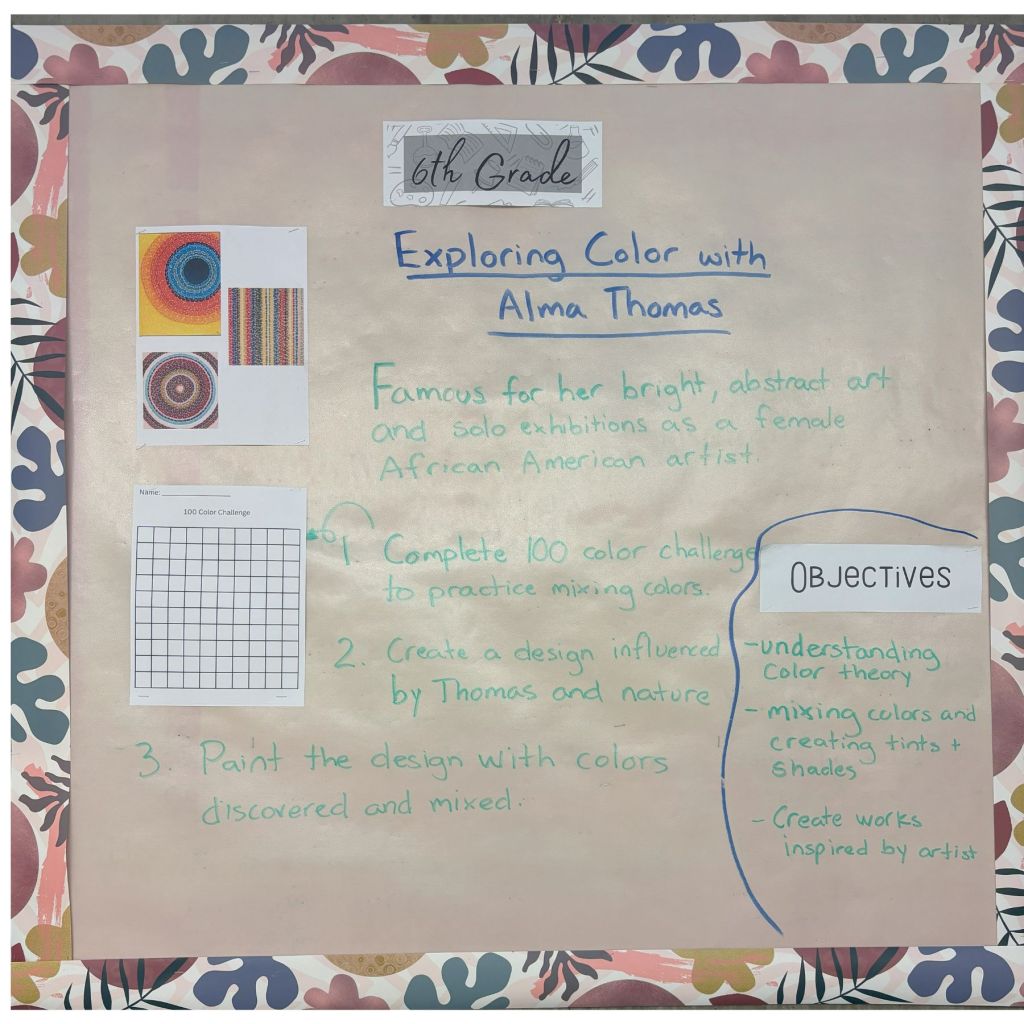 6th Grade
Exploring Color with
Alma Thomas
Famous for her bright, abstract art
and solo exhibitions as a female
African American artist.
Name:
100 Color Challenge
1. Complete 100 color challenge
to practice mixing colors.
2. Create a design influenced
by Thomas and nature
3. Paint the design with colors
discovered and mixed.
OBJECTIVES
-understanding
Color theory
- mixing colors and
creating tints +
Shades
- Create works
inspired by artist